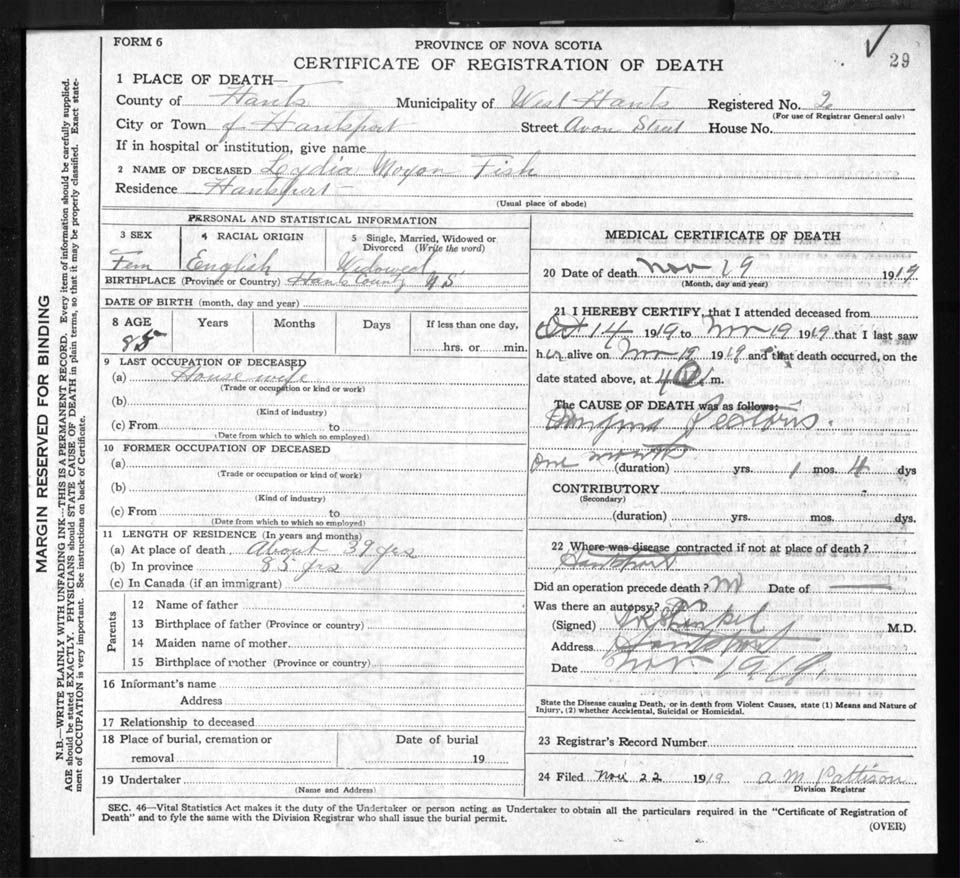 FORM 6
PROVINCE OF NOVA SCOTIA
29
CERTIFICATE OF REGISTRATION OF DEATH
1 PLACE OF DEATH—
County of Hants Municipality of West Hants Registered No. 2
(For use of Registrar General only)
City or Town of Hantsport Street Avon Street House No.
If in hospital or institution, give name
2 NAME OF DECEASED Lydia Mogan Fish
Residence Hantsport
(Usual place of abode)
PERSONAL AND STATISTICAL INFORMATION
3 SEX 4 RACIAL ORIGIN 5 Single, Married, Widowed or Divorced (Write the word)
Fem English Widowed
BIRTHPLACE (Province or Country) Hants County N S
DATE OF BIRTH (month, day and year)
8 AGE Years Months Days If less than one day,
85 hrs. or min.
9 LAST OCCUPATION OF DECEASED
(a) House wife
(Trade or occupation or kind or work)
(b)
(Kind of industry)
(c) From to
(Date from which to which so employed)
10 FORMER OCCUPATION OF DECEASED
(a)
(Trade or occupation or kind of work)
(b)
(Kind of industry)
(c) From to
(Date from which to which so employed)
11 LENGTH OF RESIDENCE (In years and months)
(a) At place of death About 39 yrs
(b) In province 85 yrs
(c) In Canada (if an immigrant)
Parents
12 Name of father
13 Birthplace of father (Province or country)
14 Maiden name of mother
15 Birthplace of mother (Province or country)
16 Informant's name
Address
17 Relationship to deceased
18 Place of burial, cremation or Date of burial
removal 19
19 Undertaker
(Name and Address)
MEDICAL CERTIFICATE OF DEATH
20 Date of death Nov 19 1919
(Month, day and year)
21 I HEREBY CERTIFY, that I attended deceased from
Oct 14 1919 to Nov 19 1919 that I last saw
her alive on Nov 19 1919 and that death occurred, on the
date stated above, at 4 m.
The CAUSE OF DEATH was as follows:
Angina Pectoris.
one month
(duration) yrs. 1 mos. 4 dys
CONTRIBUTORY
(Secondary)
(duration) yrs. mos. dys.
22 Where was disease contracted if not at place of death?
Hantsport
Did an operation precede death? no Date of
Was there an autopsy? no
(Signed) Shankel M.D.
Address Hantsport
Date Nov 1919.
State the Disease causing Death, or in death from Violent Causes, state (1) Means and Nature of
Injury, (2) whether Accidental, Suicidal or Homicidal.
23 Registrar's Record Number
24 Filed Nov 22 1919 A M Pattison
Division Registrar
SEC. 46—Vital Statistics Act makes it the duty of the Undertaker or person acting as Undertaker to obtain all the particulars required in the "Certificate of Registration of
Death" and to fyle the same with the Division Registrar who shall issue the burial permit.
(OVER)
MARGIN RESERVED FOR BINDING
N.B.—WRITE PLAINLY WITH UNFADING INK—THIS IS A PERMANENT RECORD. Every item of information should be carefully supplied.
AGE should be stated EXACTLY. PHYSICIANS should STATE CAUSE OF DEATH in plain terms, so that it may be properly classified. Exact state-
ment of OCCUPATION is very important. See instructions on back of Certificate.